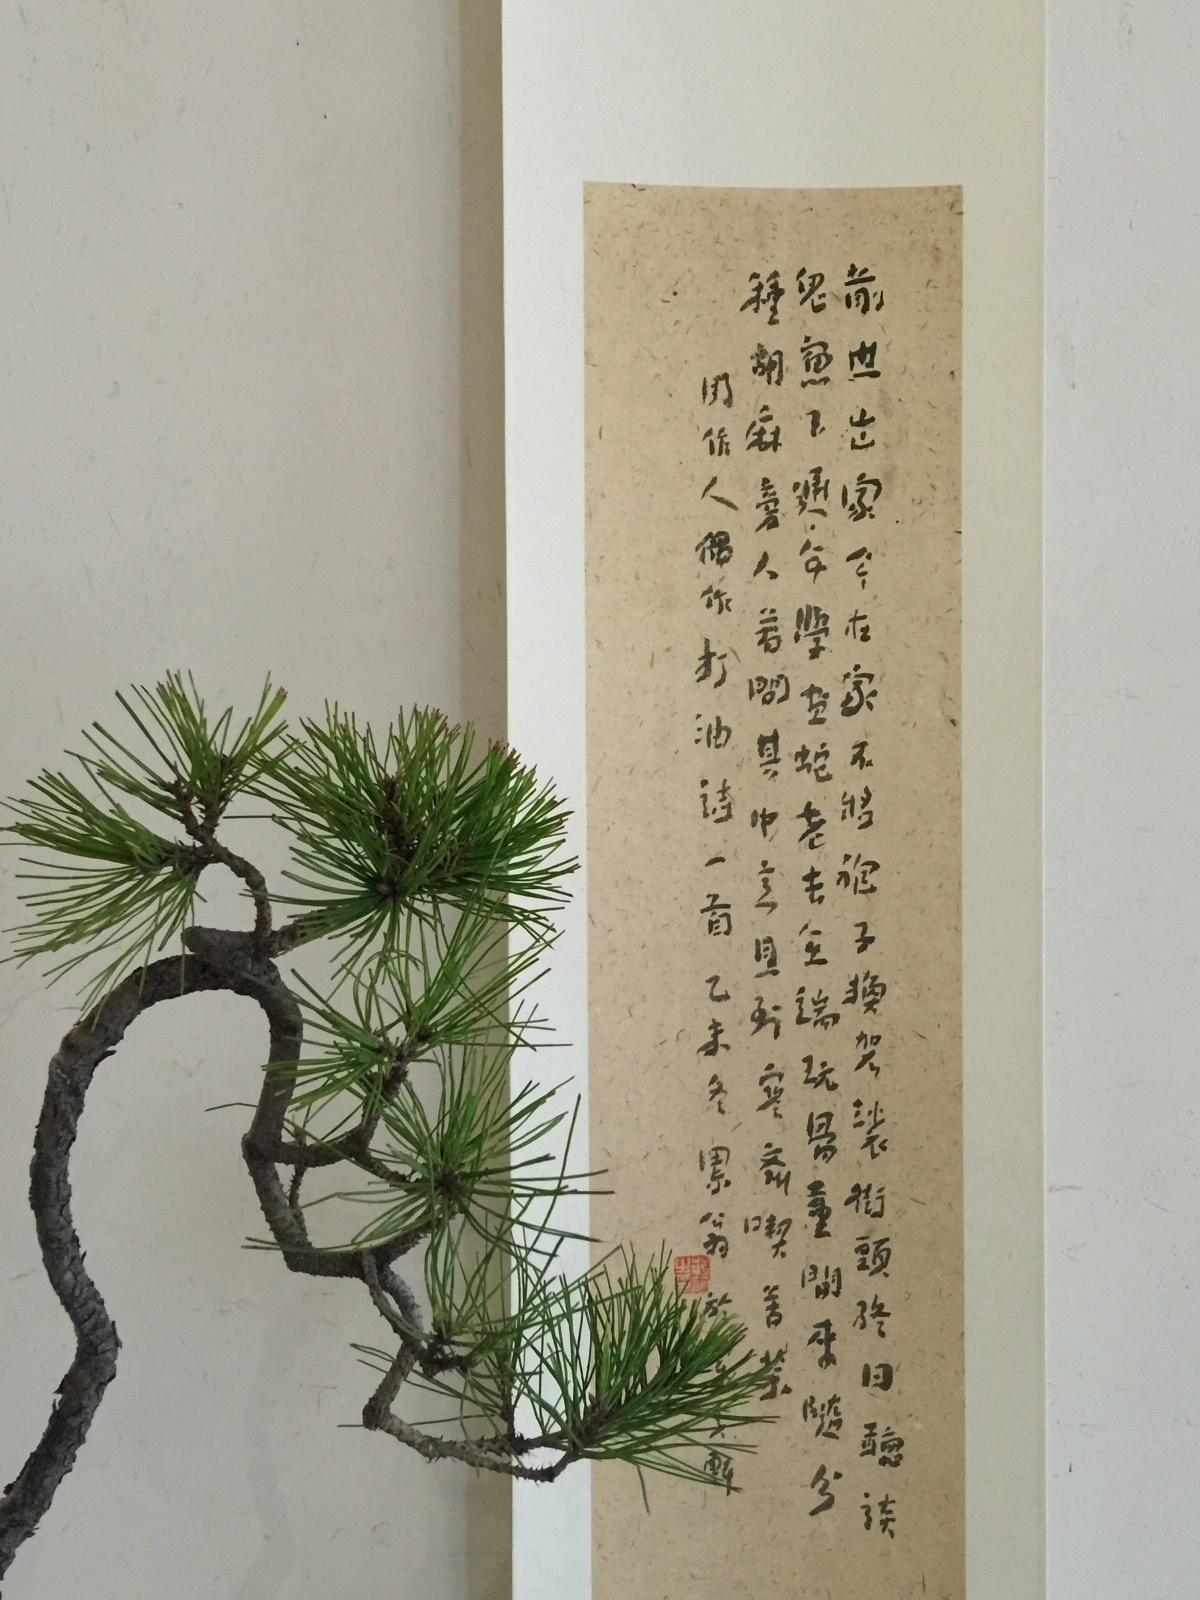 前世出家今在家不將袍子換袈裟街頭終日聽談
鬼窻下通年學畫蛇老去无端玩骨董閒來隨分
種胡麻旁人若問其中意且到寒齋喫苦茶
周作人偶作打油詩一首乙未冬翁於軒